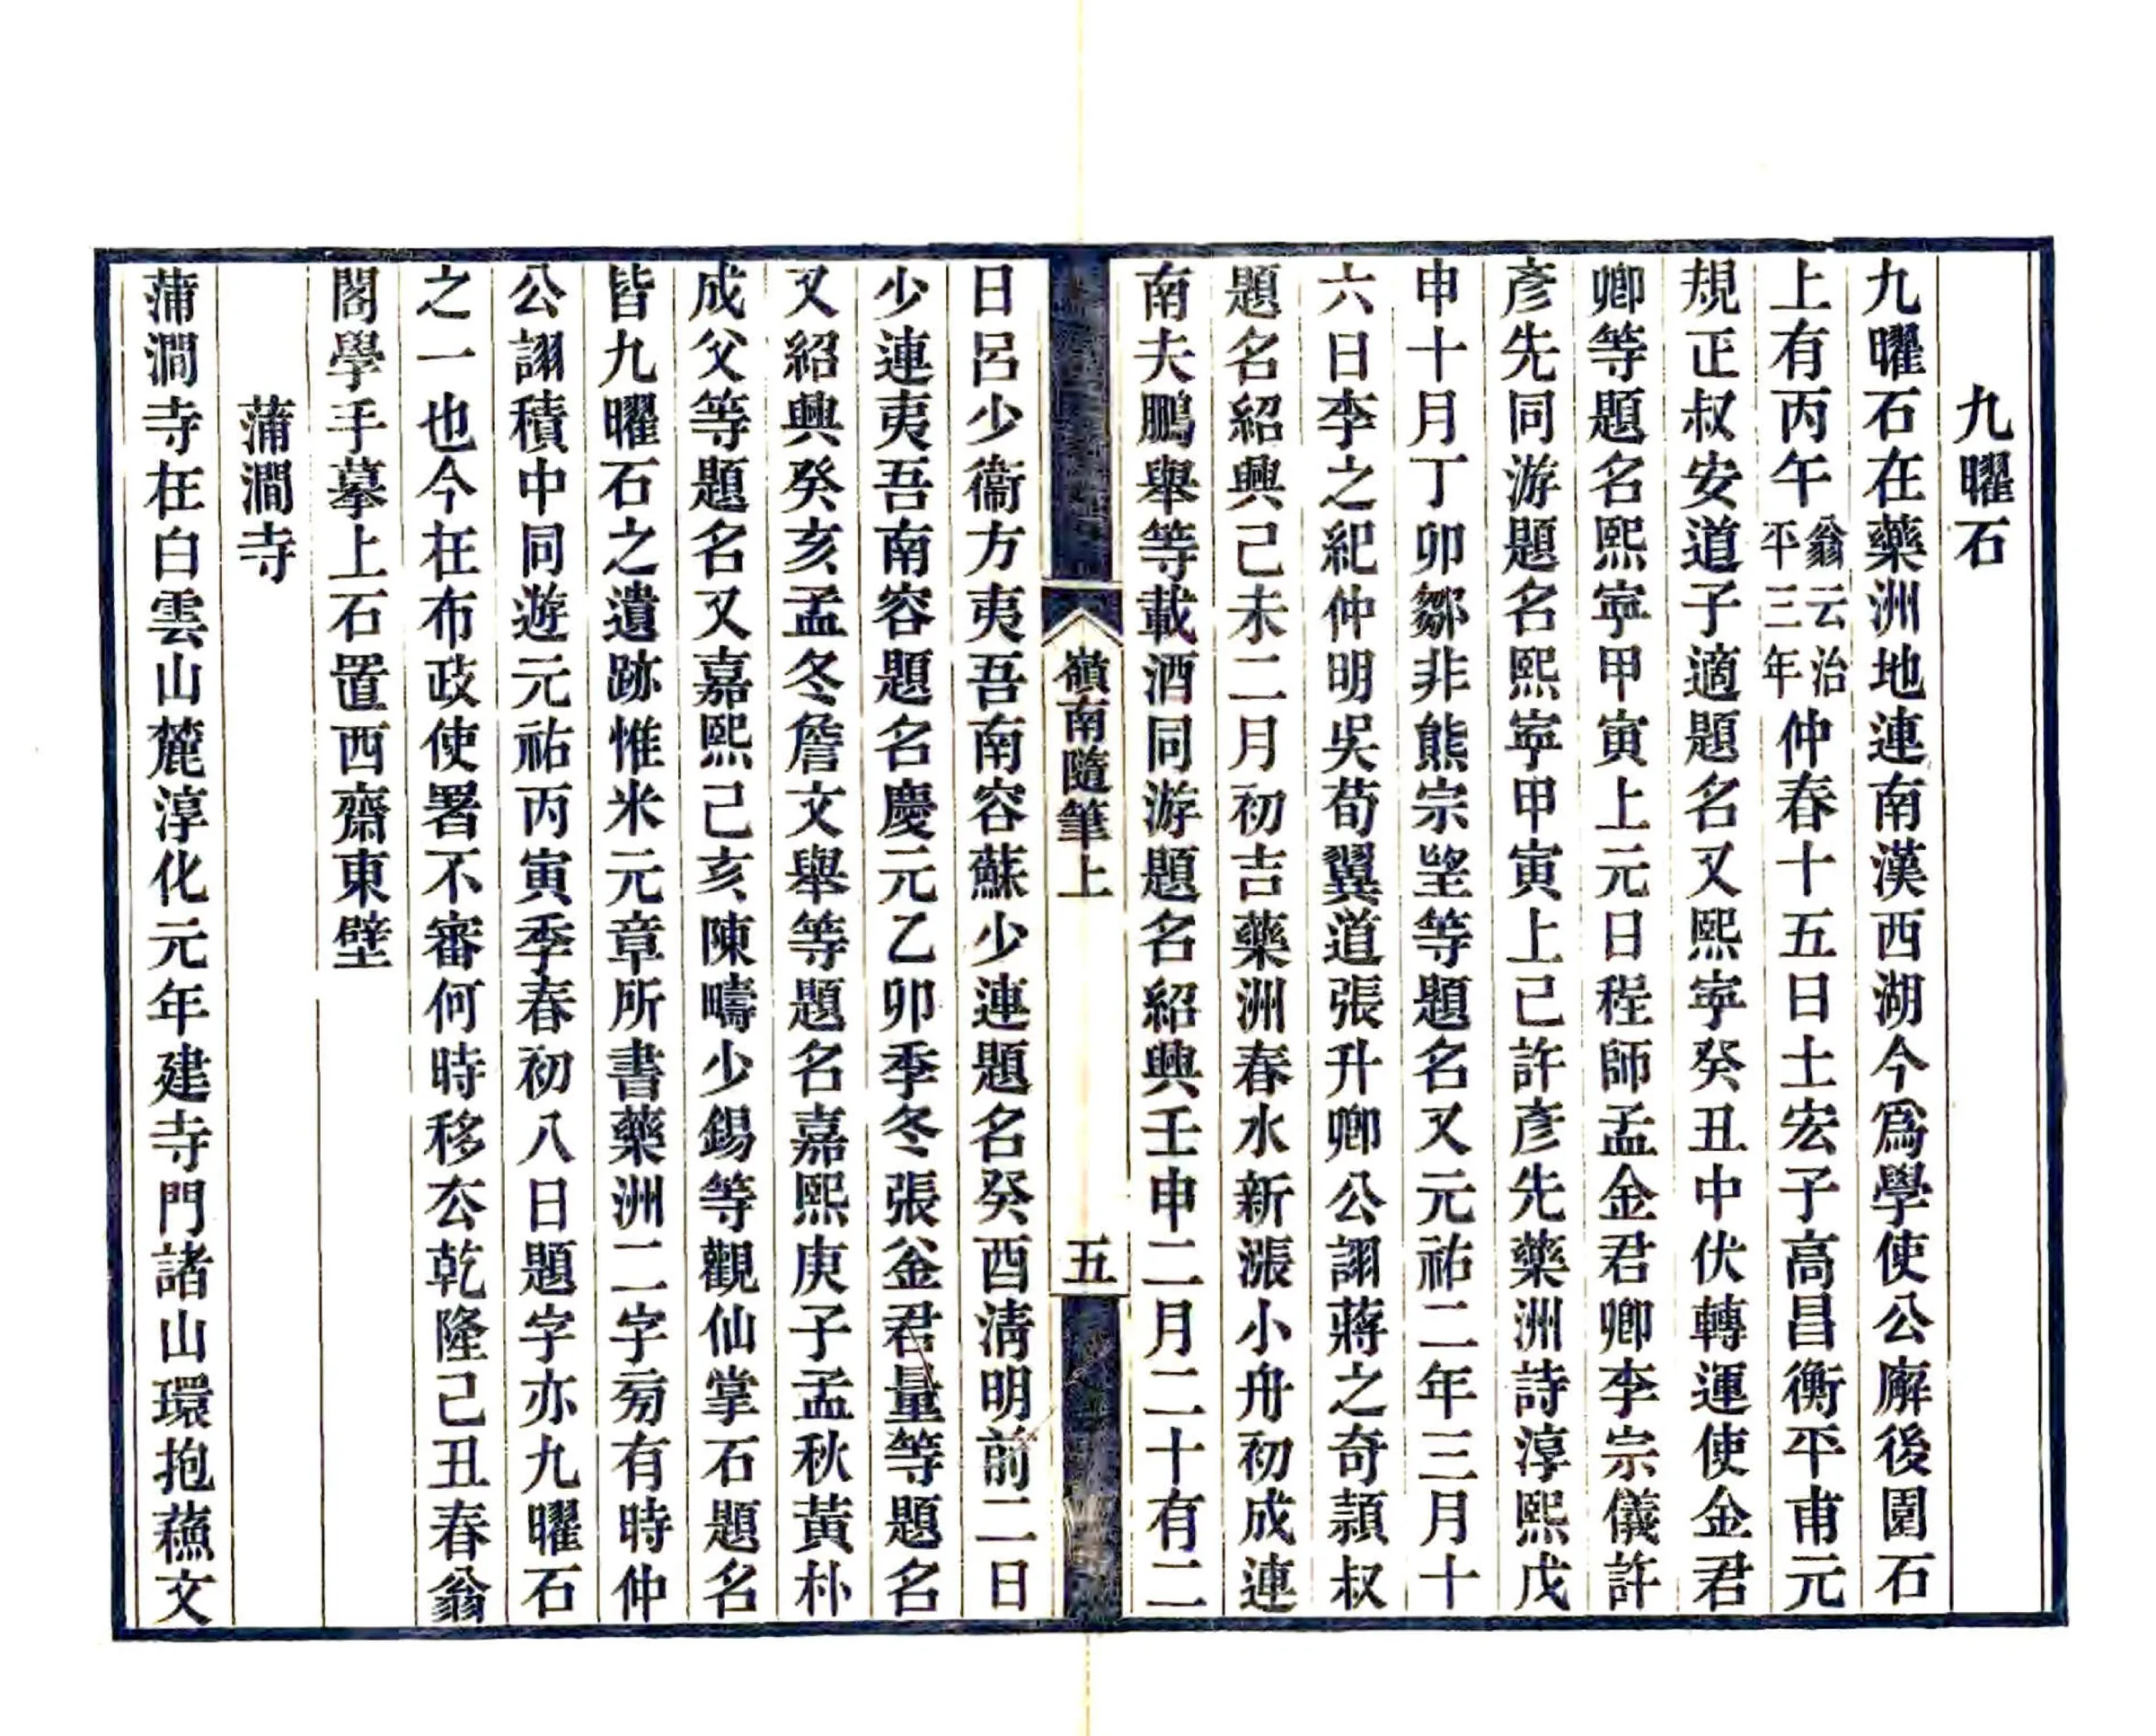 九曜石
九曜石在藥洲地連南漢西湖今爲學使公廨後園石
上有丙午翁云治平三年仲春十五日土宏子高昌衡平甫元
規正叔安道子適題名又熙寧癸丑中伏轉運使金君
卿等題名熙寧甲寅上元日程師孟金君卿李宗儀許
彥先同游題名熙寧甲寅上己許彥先藥洲詩淳熙戊
申十月丁卯鄒非熊宗朢等題名又元祐二年三月十
六日李之紀仲明吳荀翼道張升卿公詡蔣之奇頴叔
題名紹興己未二月初吉藥洲春水新漲小舟初成連
南夫鵬舉等載酒同游題名紹興壬申二月二十有二
嶺南隨筆上
五
日呂少衞方夷吾南容蘇少連題名癸酉淸明前二日
少連夷吾南容題名慶元乙卯季冬張釜君量等題名
又紹興癸亥孟冬詹文舉等題名嘉熙庚子孟秋黃朴
成父等題名又嘉熙己亥陳疇少錫等觀仙掌石題名
皆九曜石之遺跡惟米元章所書藥洲二字㫄有時仲
公詡積中同遊元祐丙寅季春初八日題字亦九曜石
之一也今在布政使署不審何時移厺乾隆己丑春翁
閣學手摹上石置西齋東壁
蒲澗寺
蒲澗寺在白雲山麓淳化元年建寺門諸山環抱蘓文